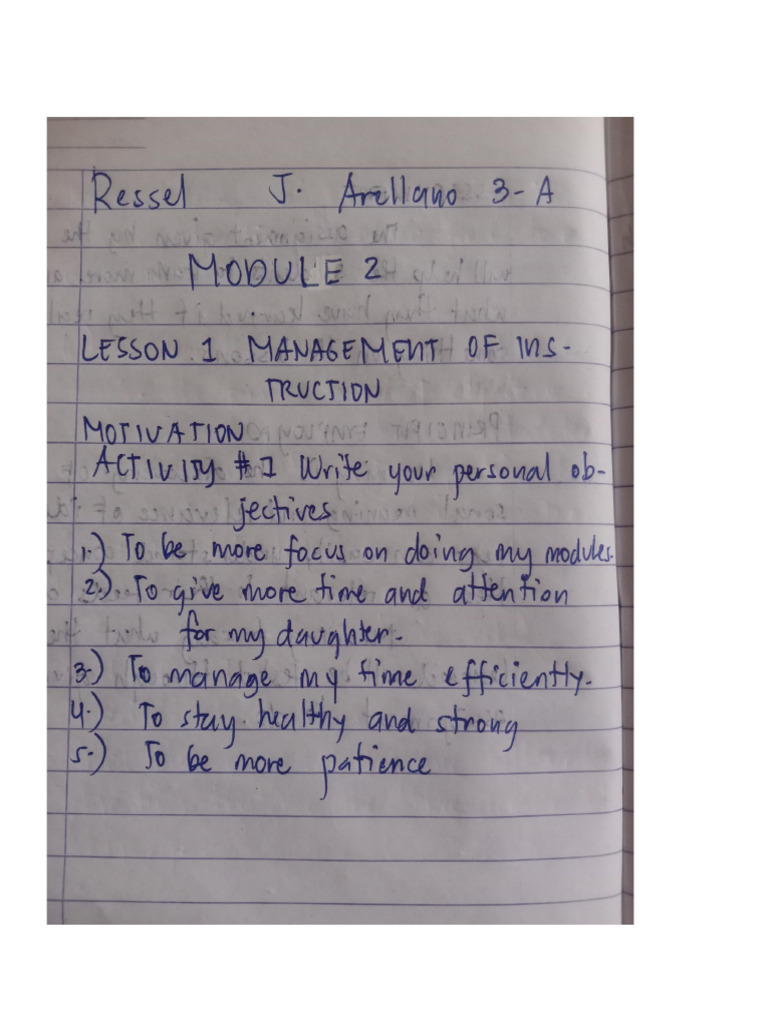 Ressel J. Arellano 3-A
MODULE 2
LESSON 1 MANAGEMENT OF INS-
TRUCTION
MOTIVATION
ACTIVITY #1 Write your personal ob-
jectives
1.) To be more focus on doing my modules.
2.) To give more time and attention
for my daughter.
3.) To manage my time efficiently.
4.) To stay healthy and strong
5.) To be more patience